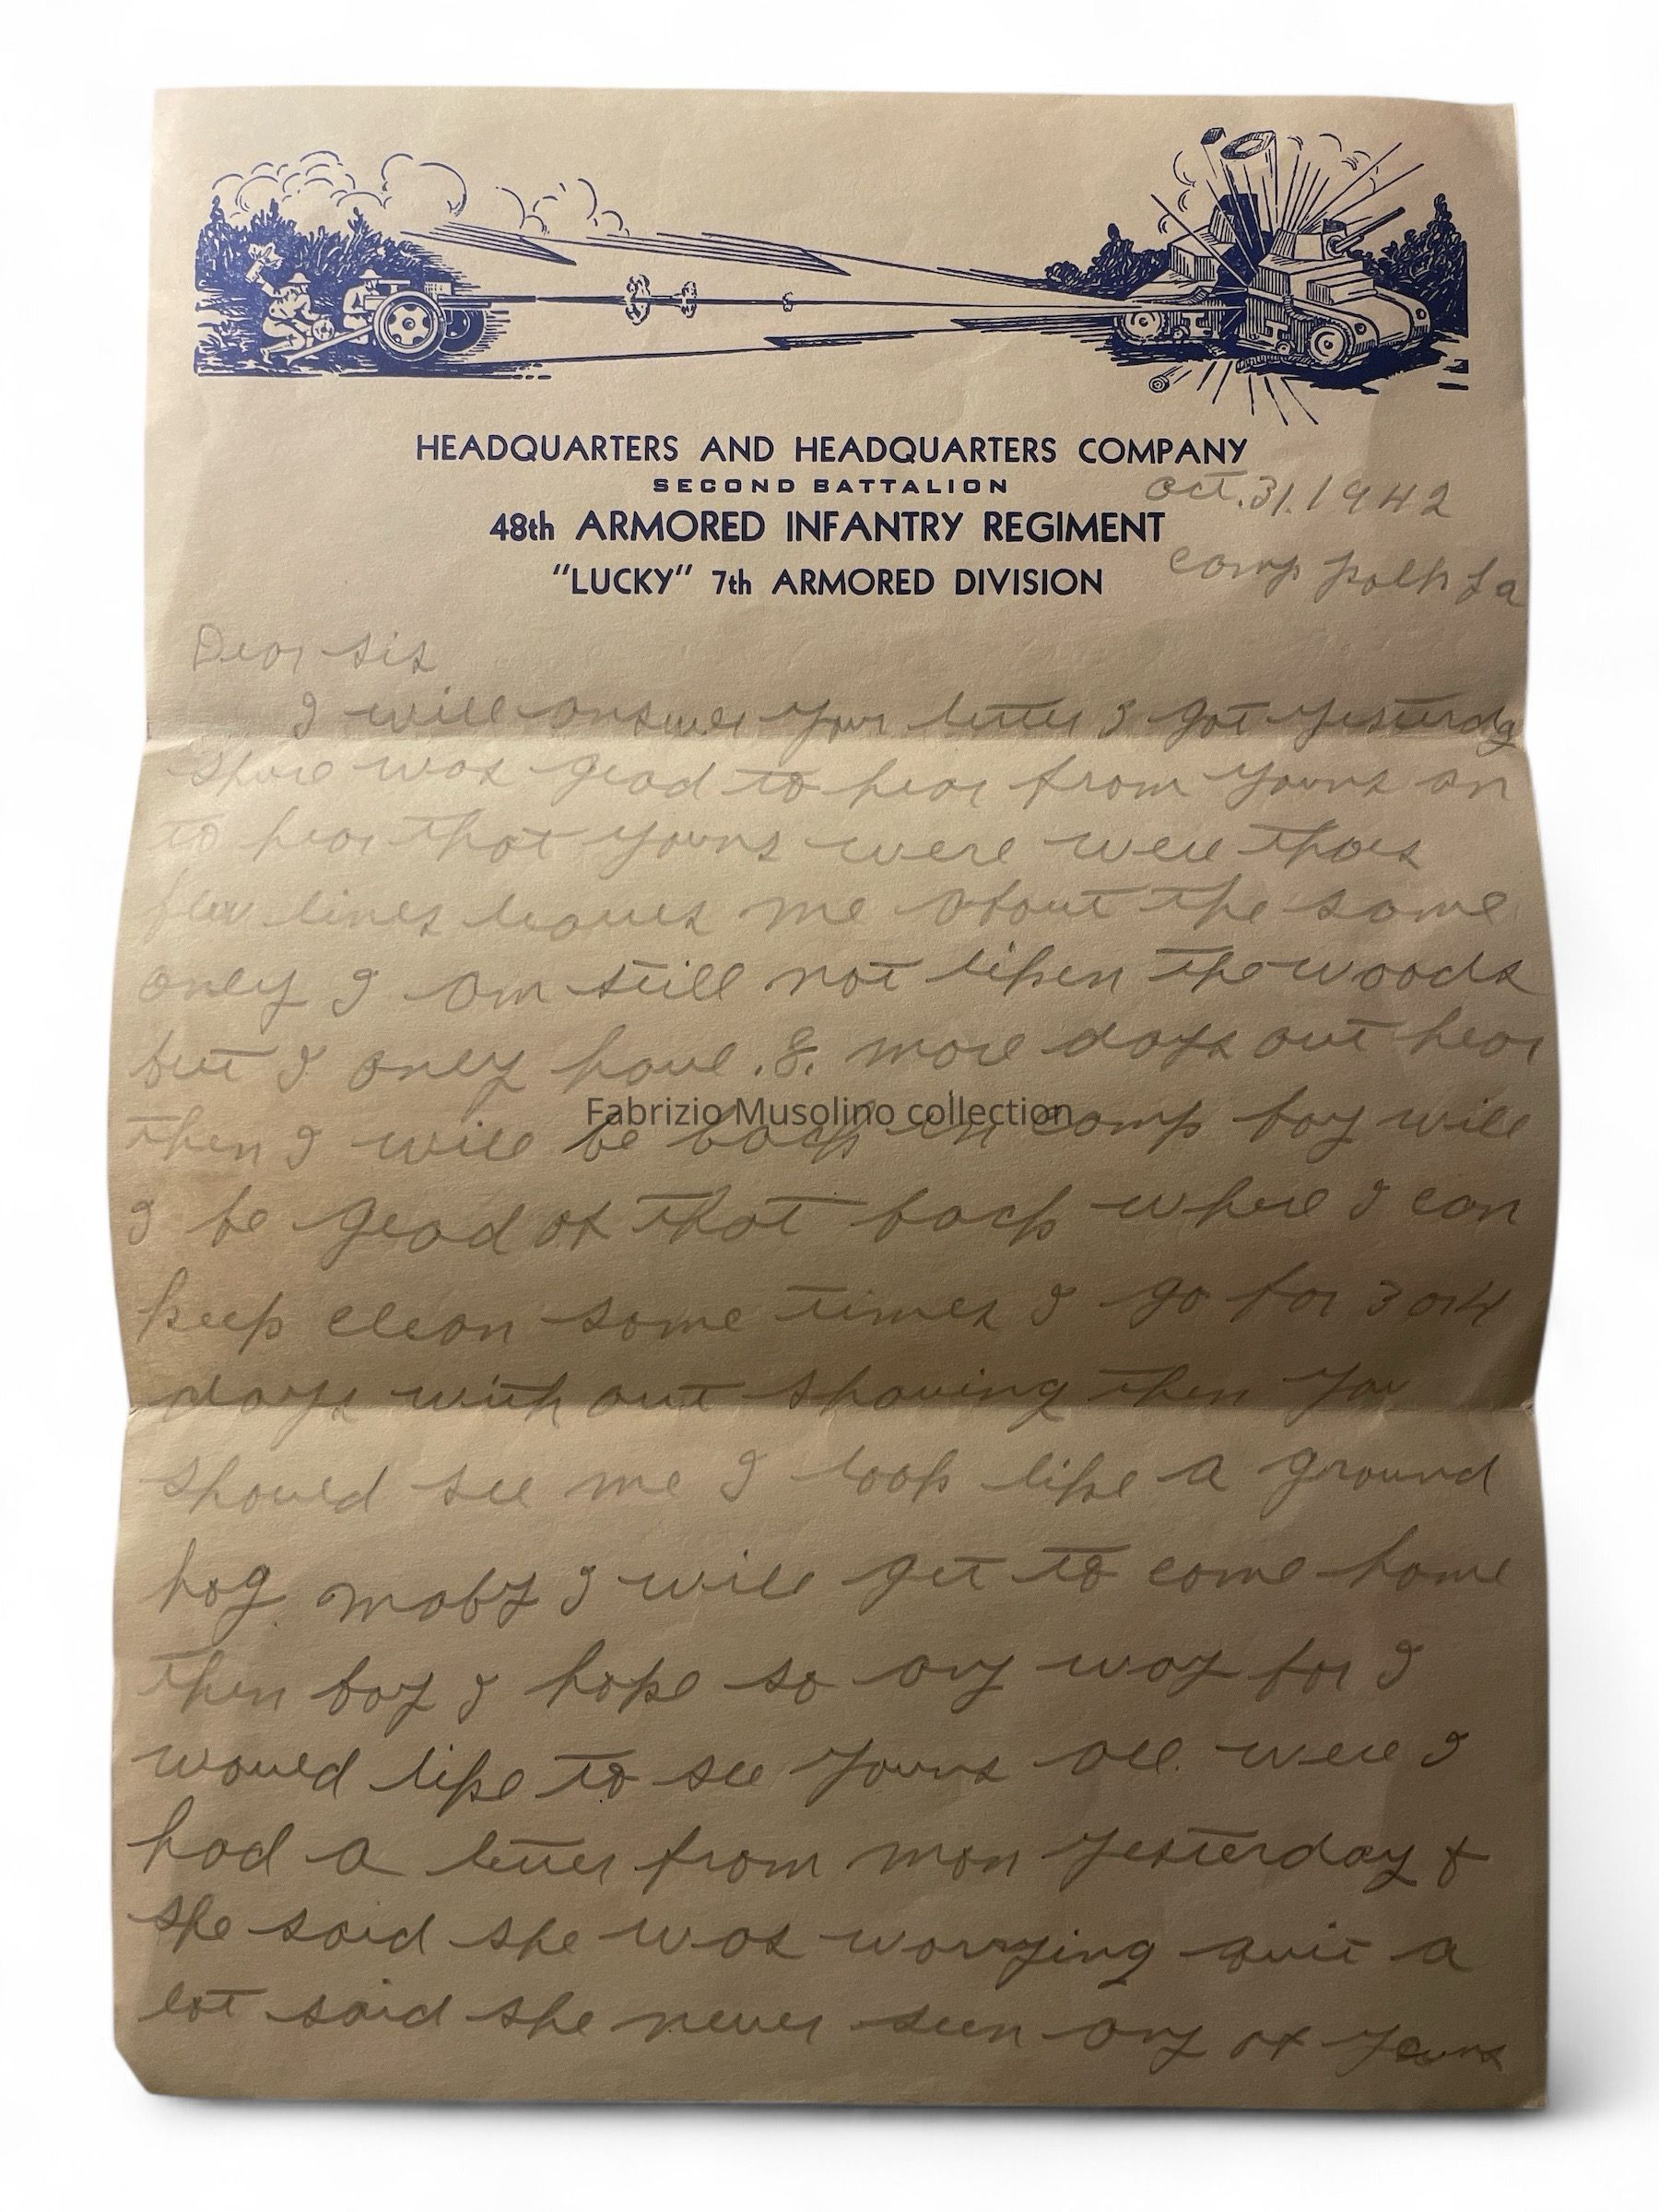 HEADQUARTERS AND HEADQUARTERS COMPANY
SECOND BATTALION
oct. 31. 1942
48th ARMORED INFANTRY REGIMENT
camp polk La
"LUCKY" 7th ARMORED DIVISION
Dear sis
I will answer your letter I got yesterday
shure was glad to hear from youns an
to hear that youns were well thoes
few lines leaves me about the same
only I am still not liken the woods
but I only have .8. more days out hear
then I will be back in camp boy will
Fabrizio Musolino collection
I be glad of that back where I can
keep clean some times I go for 3 or 4
days with out shaving then you
should see me I look like a ground
hog. maby I will get to come home
then boy I hope so any way for I
would like to see youns all. well I
had a letter from mon yesterday &
she said she was worrying quit a
lot said she never seen any of youns